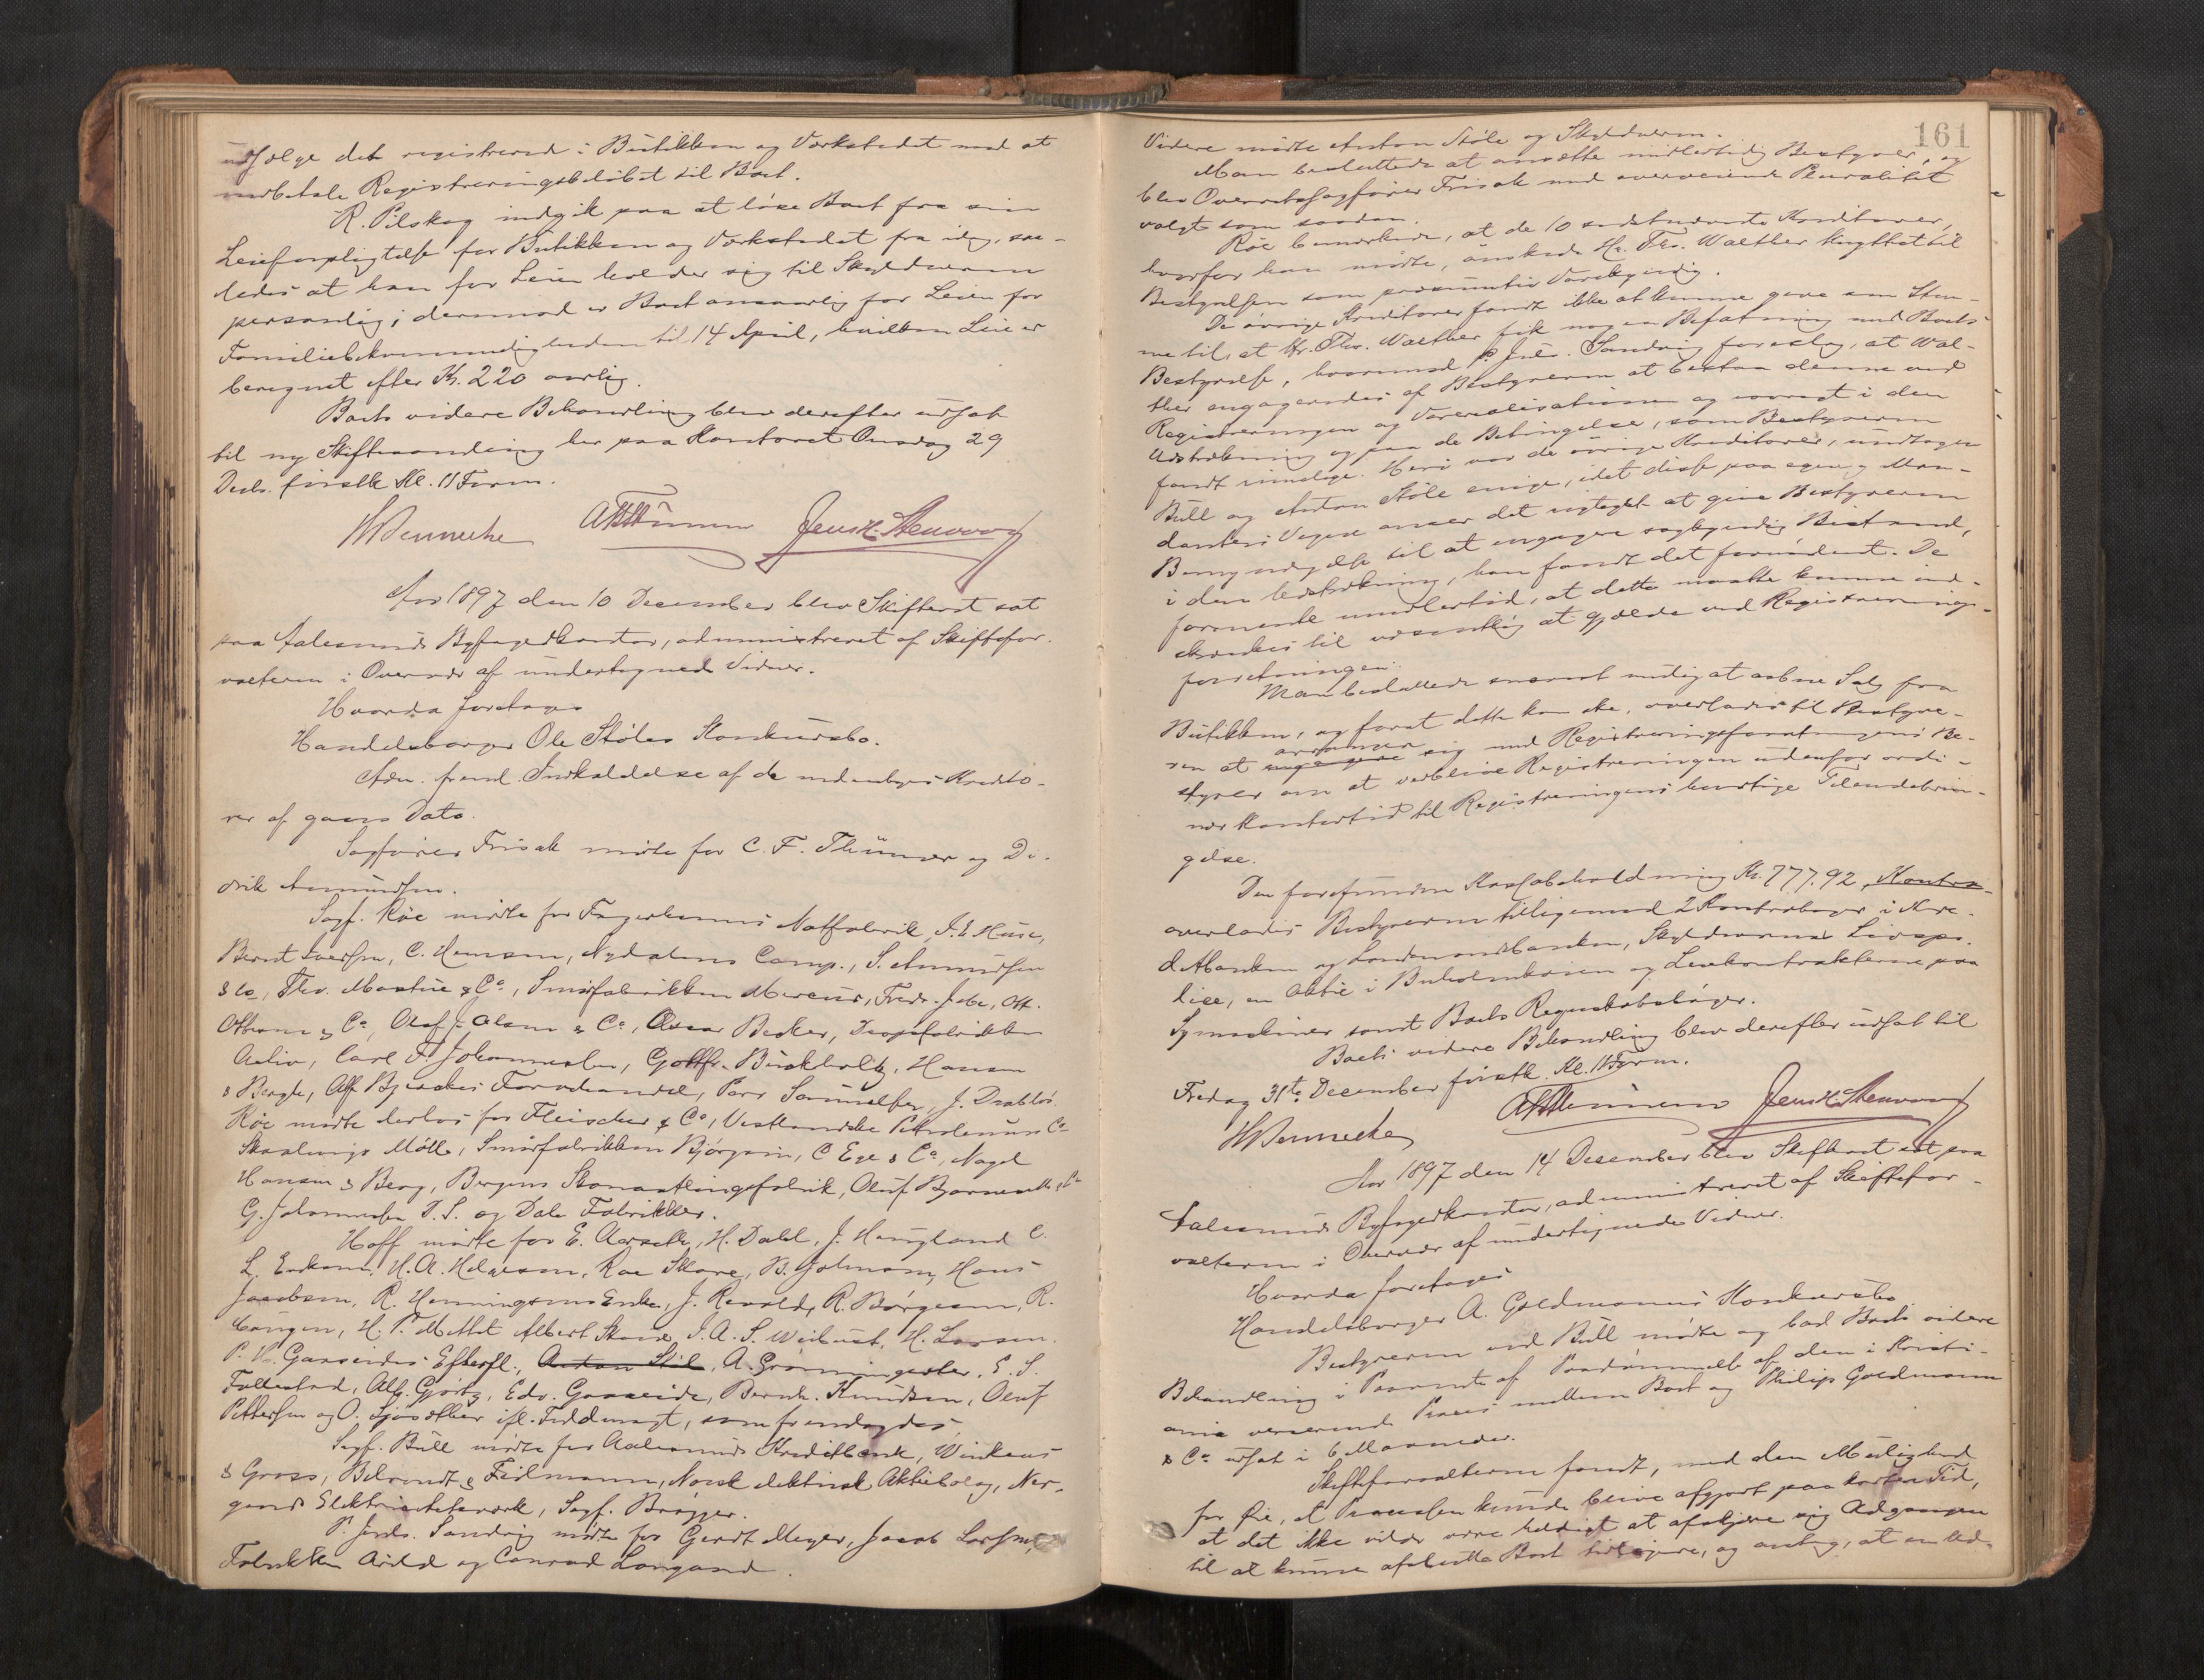 udfølge det registrered i Butikken og Værkstedet mod at
indbetale Registreringsbeløbet til Boet.
R. Pilskog indgik paa at løse Boet fra sin
Leieforpligtelse for Butikken og Værkstedet fra idag, saa-
ledes at han for Leien holder sig til Skyldneren
personlig; derimod er Boet ansvarlig for Leien for
Familiebekvemmeligheden til 14 April, hvilken Leie er
beregnet efter Kr. 220 aarlig.
Boets videre Behandling blev derefter udsat
til ny Skiftesamling her paa Kontoret Onsdag 29
Decbr. førstk. Kl. 11 Form.
Jens H. Stenvaag
Aar 1897 den 10 December blev Skifteret sat
paa Aalesunds Byfogedkontor, administreret af Skiftefor-
valteren i Overvær af undertegnede Vidner.
Hvorda foretages
Handelsborger Ole Støles Konkursbo.
Adm. freml. Indkaldelse af de indenbyes Kredito-
rer af gaars Dato.
Sagfører Frisak mødte for C. F. Thümer og Di-
drik Amundsen.
Sagf. Røe mødte for Fagerheims Notfabrik, J. E. Huse,
Bernt Iversen, C. Hansen, Nydalens Comp., S. Amundsen
& Co, Thv. Mastue & Co, Smørfabrikken Mercur, Fredr. Jebe, Ott.
Ottesen & Co, Oluf J. Olsen & Co, Oscar Becker, Dropsfabrikken
Activ, Carl F. Johannesen, Gottfr. Buchholtz, Hansen
& Bergh, Alf Bjerckes Farvehandel, Pars Samuelsen, J. Drabløs
Røe mødte derhos for Fleischer & Co, Vestlandske Petroleums Co
Skaalvigs Mølle, Smørfabrikken Bjørgvin, C Ege & Co, Nagel
Hansen & Berg, Bergens Skomagerfabrik, Oluf Bjørneseth & Co
G. Johannesen D. S. og Dale Fabrikker.
Hoff mødte for E. Aarseth, H. Dahl, J. Haugland C.
L. Eriksen, H. A. Helgesen, Roe Skare, B. Johnsen, Hans
Jacobsen, R. Henningsens Enke, J. Revold, R. Børgesen, R.
H. P. Mittet Albert Skare, J. A. S. H. Larsen.
P. Gangsøies Efterfl., Anton Støl, A. Grønningsæter, E. S.
Follestad, Alf. Gjørtz, Edv. Gaaseide, Bernh. Knudsen, Oluf
Pettersen og O. Sjøsæther ifl. Fuldmagt, som fremlagdes
Sagf. Bull mødte for Aalesunds Kreditbank, Winkens
& Gross, Behrendt & Feilmann, Norsk elektrisk Aktiebolag, Nør-
gaards Elektricitetsværk, Sagf. Brøgger.
P. Jrds. Sandvig mødte for Gerdt Meyer, Jacob Larsen,
Fabrikken Arild og Conrad Langaard.
161
Videre mødte Anton Støle og Skyldneren.
Man besluttede at ansætte midlertidig Bestyrer, og
blev Overretssagfører Frisak med overveiende Pluralitet
valgt som saadan.
Røe bemærkede, at de 10 Kreditorer,
hvorfor han mødte, ønskede Hr. Thv. Walther knyttet til
Bestyrelsen som varekyndig.
De øvrige Kreditorer fandt ikke at kunne give sin Stem-
me til, at Hr. Thv. Walther fik nogen Befatning med Boets
Bestyrelse, hvorimod P. Jrds. Sandvig foreslog, at Wal-
ther engageredes af Bestyreren at bestaa denne ved
Registreringen og Varerealisationen og saavidt i den
Udstrækning og paa de Betingelser, som Bestyreren
fandt rimelige. Heri var de øvrige Kreditorer, undtagen
Bull og Anton Støle enige, idet disse paa egne og Man-
danters Vegne anser det rigtigst at give Bestyreren
Bemyndigelse til at engagere sagkyndig Bistand,
i den Udstrækning, han fandt det fornødent. De
formente imidlertid, at dette maatte komme ind-
skrænkes til væsentlig at gjælde ved Registrerings-
forretningen.
Man besluttede snarest mulig at aabne Salg fra
Butikken, og forat dette kan ske, overlades til Bestyre-
ren at engagere arrangere sig med Registreringsforretningens Be-
styrer om at udføre Registreringen udenfor ordi-
nær Kontortid til Registreringens hurtige Tilendebrin-
gelse.
Den forefundne Kassabeholdning Kr. 777.92, Kontra-
overlades Bestyreren tilligemed 2 Kontrabøger i Kre-
ditbanken og Landmandsbanken, Skyldnerens Livspo-
lice, en Aktie i Buholmkaien og Leiekontrakterne paa
Symaskiner samt Boets Regnskabsbøger.
Boets videre Behandling blev derefter udsat til
Fredag 31te December førstk. Kl. 11 Form.
Jens H. Stenvaag
Aar 1897 den 14 December blev Skifteret sat paa
Aalesunds Byfogedkontor, administreret af Skiftefor-
valteren i Overvær af undertegnede Vidner.
Hvorda foretages
Handelsborger A. Goldmanns Konkursbo.
Bestyreren ved Bull mødte og bad Boets videre
Behandling i Paavente af Paadømmelse af den i Kristi-
ania verserende Proces mellem Boet og Philip Goldmann
& Co udsat i 6 Maaneder.
Skifteforvalteren fandt, med den Mulighed
for Øie, at Processen kunde blive afgjort paa kortere Tid,
at det ikke vilde være heldigt at afskjære sig Adgangen
til at kunne afslutte Boet tidligere, og antog, at en Ud-